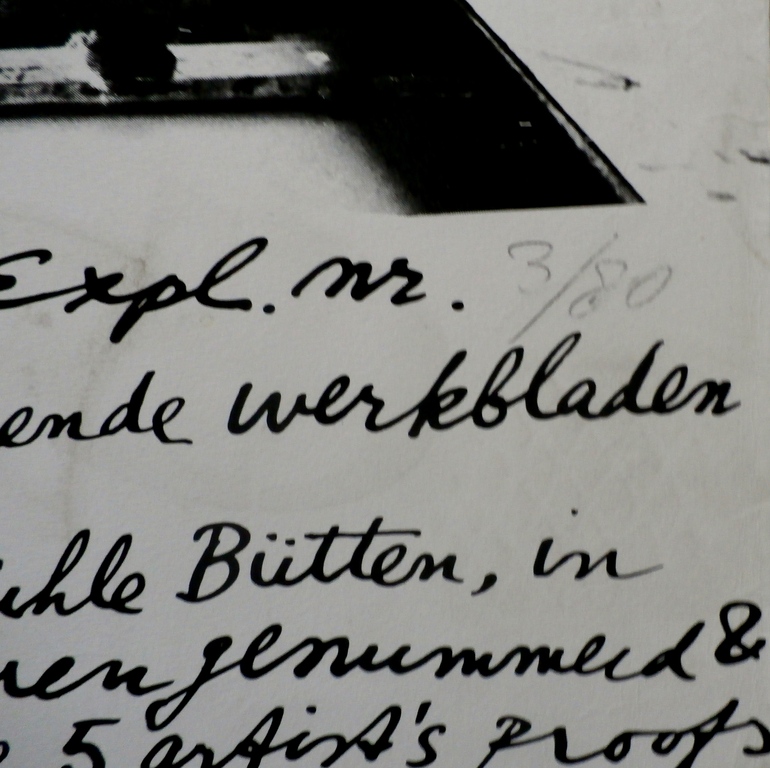 Expl. nr. 3/80
ende werkbladen
ühle Bütten, in
ren genummerd &
5 artist's proofs